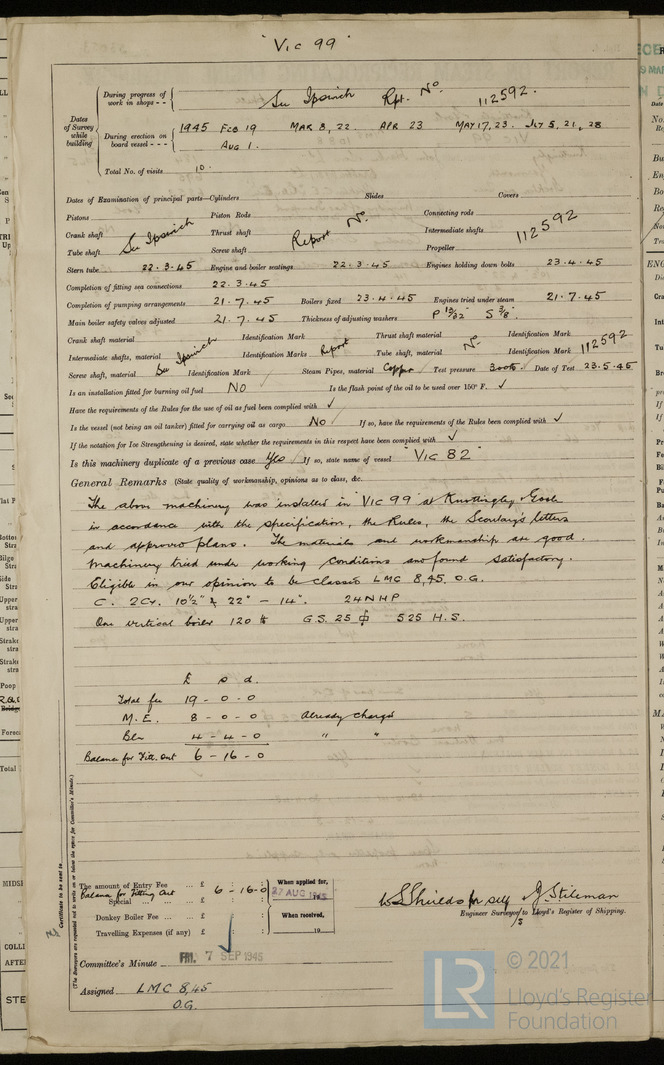 "Vic 99"
During progress of work in shops - - See Ipswich Rpt. No. 112592.
Dates of Survey while building
During erection on board vessel - - - 1945 FEB 19 MAR 8, 22. APR 23 MAY 17, 23. JLY 5, 21, 28
AUG 1.
Total No. of visits 10.
Dates of Examination of principal parts—Cylinders Slides Covers
Pistons Piston Rods Connecting rods
Crank shaft Thrust shaft Intermediate shafts
See Ipswich Report No. 112592
Tube shaft Screw shaft Propeller
Stern tube 22.3.45 Engine and boiler seatings 22.3.45 Engines holding down bolts 23.4.45
Completion of fitting sea connections 22.3.45
Completion of pumping arrangements 21.7.45 Boilers fixed 23.4.45 Engines tried under steam 21.7.45
Main boiler safety valves adjusted 21.7.45 Thickness of adjusting washers P 13/32" S 3/8".
Crank shaft material Identification Mark Thrust shaft material Identification Mark
See Ipswich Report No. 112592
Intermediate shafts, material Identification Marks Tube shaft, material Identification Mark
Screw shaft, material Identification Mark Steam Pipes, material Copper Test pressure 300 lb Date of Test 23.5.45
Is an installation fitted for burning oil fuel No Is the flash point of the oil to be used over 150° F. ✓
Have the requirements of the Rules for the use of oil as fuel been complied with ✓
Is the vessel (not being an oil tanker) fitted for carrying oil as cargo No If so, have the requirements of the Rules been complied with ✓
If the notation for Ice Strengthening is desired, state whether the requirements in this respect have been complied with ✓
Is this machinery duplicate of a previous case Yes If so, state name of vessel "VIC 82"
General Remarks (State quality of workmanship, opinions as to class, &c.
The above machinery was installed in "VIC 99" at Knottingley & Goole
in accordance with the specification, the Rules, the Secretary's letters
and approved plans. The materials and workmanship are good.
Machinery tried under working conditions and found satisfactory.
Eligible in our opinion to be classed LMC 8,45. O.G.
C. 2Cy. 10½" & 22" - 14". 24 NHP
One vertical boiler 120 lb G.S. 25 ф 525 H.S.
£ s d.
Total fee 19 - 0 - 0
M.E. 8 - 0 - 0 Already charged
Blr 4 - 4 - 0 " "
Balance for Fitt. out 6 - 16 - 0
Certificate to be sent to
(The Surveyors are requested not to write on or below the space for Committee's Minute.)
The amount of Entry Fee ... £ : : When applied for,
Balance for Fitting Out 6 - 16 - 0
Special ... £ : : 27 AUG 1945
Donkey Boiler Fee ... £ : : When received,
Travelling Expenses (if any) £ : : 19
W S Shields for self & J. Stileman
Engineer Surveyor/s to Lloyd's Register of Shipping.
Committee's Minute FRI. 7 SEP 1945
Assigned LMC 8,45
O.G.
LR
© 2021
Lloyd's Register
Foundation